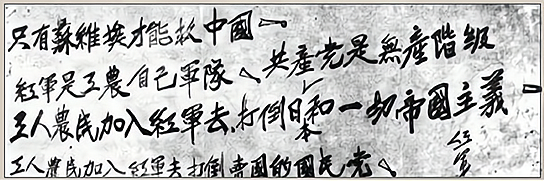 只有蘇維埃才能救中國
紅軍是工農自己軍隊、共產党是無產階級
工人農民加入紅軍去,打倒日本和一切帝國主義
工人農民加入紅軍去打倒賣國的國民党、
紅軍